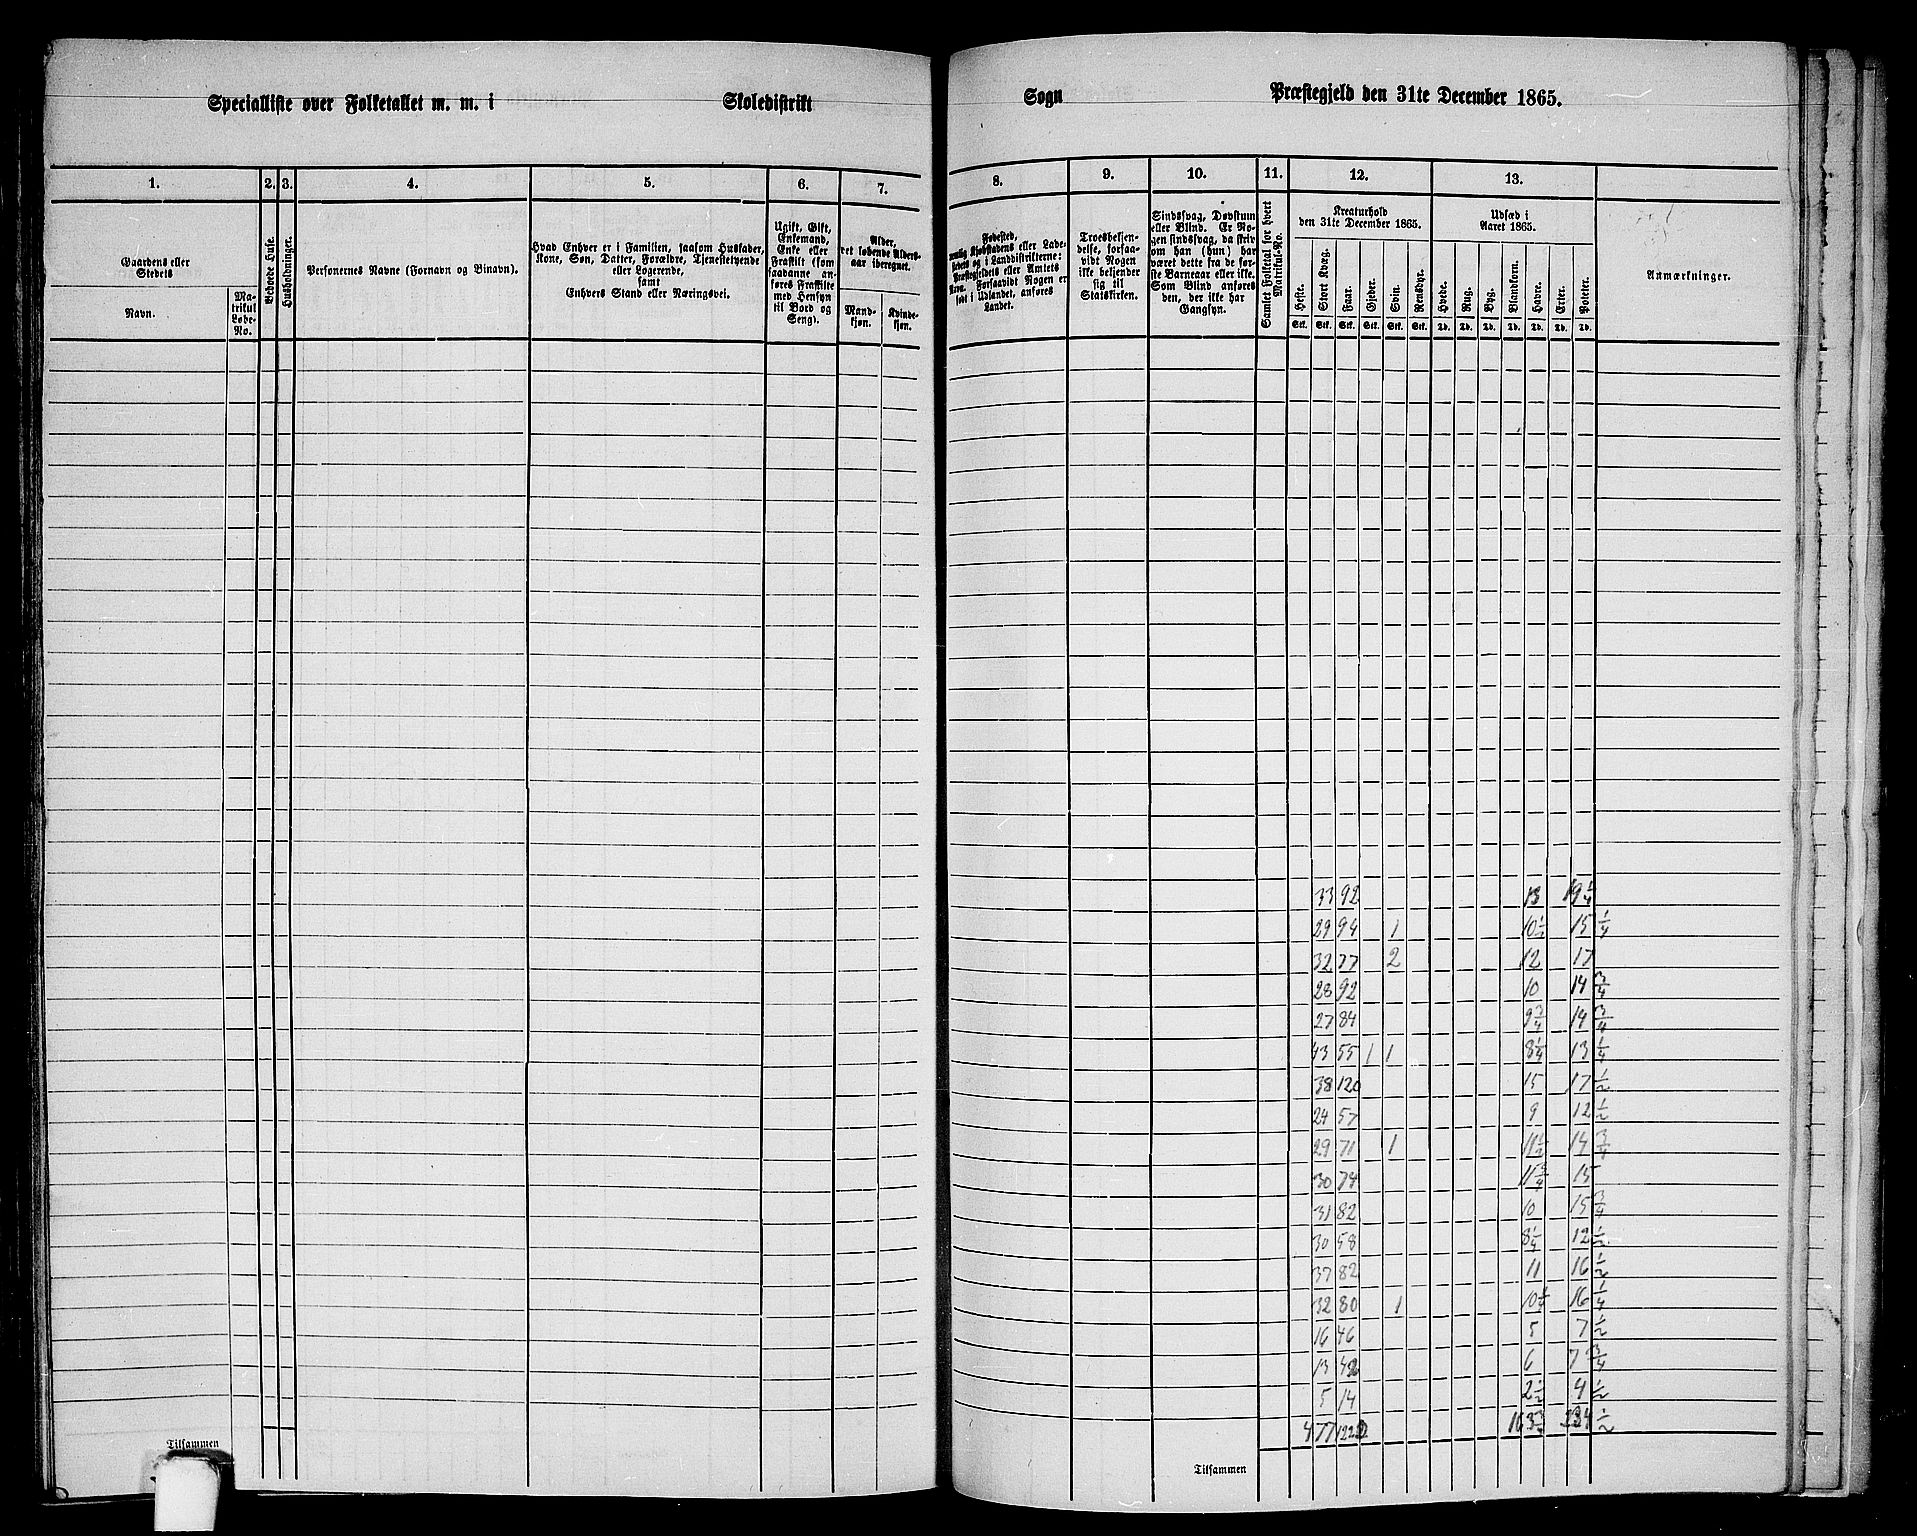 Specialliste over Folketallet m. m. i Skoledistrikt Sogn Præstegjeld den 31te December 1865.
1. 2. 3. 4. 5. 6. 7. 8. 9. 10. 11. 12. 13.
Gaardens eller
Stedets
Navn.
Ma-
trikul
Løbe-
No.
Beboede Huse.
Husholdninger.
Personernes Navne (Fornavn og Binavn).
Hvad Enhver er i Familien, saasom Husfader,
Kone, Søn, Datter, Forældre, Tjenestetyende
eller Logerende,
samt
Enhvers Stand eller Næringsvei.
Ugift, Gift,
Enkemand,
Enke eller
Fraskilt (som
saadanne an-
føres Fraskilte
med Hensyn
til Bord og
Seng).
Alder,
det løbende Alders-
aar iberegnet.
Mand-
kjøn.
Kvinde-
kjøn.
Fødested,
nemlig Kjøbstadens eller Lade-
stedets og i Landdistrikterne:
Præstegjeldets eller Amtets
Navn. Forsaavidt Nogen er
født i Udlandet, anføres
Landet.
Troesbekjen-
delse, forsaa-
vidt Nogen
ikke bekjender
sig til
Statskirken.
Sindssvag, Døvstum
eller Blind. Er No-
gen sindssvag, da skriv
om han (hun) har
været dette fra de før-
ste Barneaar eller ikke.
Som Blind anføres
den, der ikke har
Gangsyn.
Samlet Folketal for hvert
Matrikul-No.
Kreaturhold
den 31te December 1865.
Heste. Stort Kvæg. Faar. Gjeder. Svin. Rensdyr.
Stk. Stk. Stk. Stk. Stk. Stk.
Udsæd i
Aaret 1865.
Hvede. Rug. Byg. Blandkorn. Havre. Erter. Poteter.
Td. Td. Td. Td. Td. Td. Td.
Anmærkninger.
33 92 13 19 1/4
29 94 1 10 1/2 15 1/4
32 77 2 12 17
28 92 10 14 3/4
27 84 9 3/4 14 3/4
43 55 1 1 8 1/4 13 1/4
38 120 15 17 1/2
24 57 9 12 1/2
29 71 1 11 1/2 14 3/4
30 74 11 3/4 15
31 82 10 15 3/4
30 58 8 1/4 12 1/2
37 82 11 16 1/2
32 80 1 10 1/4 16 1/4
16 46 5 7 1/2
13 6 7 3/4
5 14 2 1/2 4 1/2
477 163 3/4
Tilsammen
Tilsammen